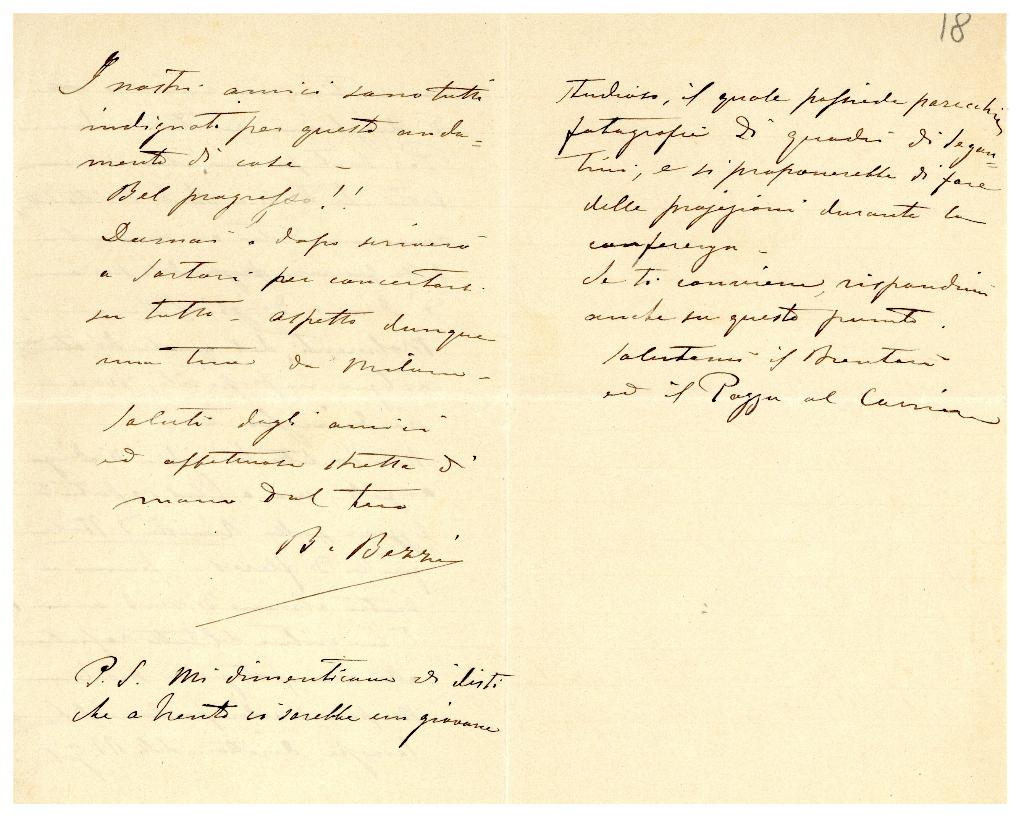 18
I nostri amici sono tutti
indignati per questo anda=
mento di cose -
Bel progresso!!
Domani o dopo scriverò
a Sartori per concertarsi
su tutto - aspetto dunque
una tua da Milano -
Saluti dagli amici
ed affettuosa stretta di
mano dal tuo
B. Bezzi
P. S. Mi dimenticavo di dirti
che a Trento ci sarebbe un giovane
studioso, il quale possiede parecchie
fotografie di quadri di Segan=
tini, e si proponerebbe di fare
delle projezioni durante la
conferenza -
Se ti conviene, rispondimi
anche su questo punto.
Salutami il Brentari
ed il Pozza al Corriere